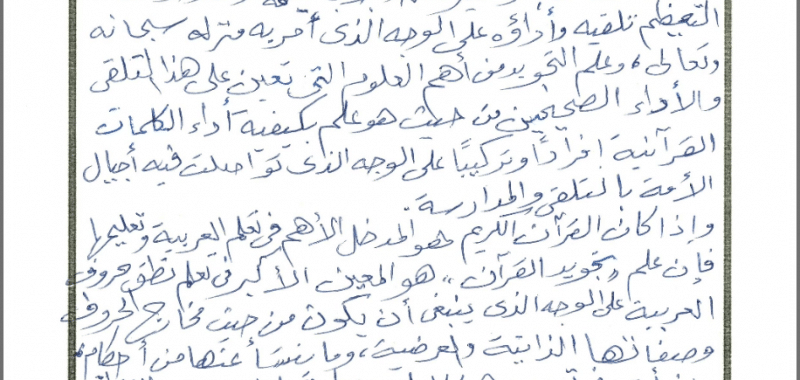 التعظيم تلقيه وأداؤه على الوجه الذى أمر به منزله سبحانه
وتعالى، وعلم التجويد من أهم العلوم التى تعين على هذا التلقى
والأداء الصحيحين من حيث هو علم بكيفية أداء الكلمات
القرآنية إفرادًا وتركيبًا على الوجه الذى تواصلت فيه أجيال
الأمة بالتلقى والمدارسة.
وإذا كان القرآن الكريم هو المدخل الأهم فى تعلم العربية وتعليمها
فإن علم "تجويد القرآن" هو المعين الأكبر فى تعلم نطق حروف
العربية على الوجه الذى ينبغى أن يكون من حيث مخارج الحروف
وصفاتها الذاتية والعرضية، وما ينشأ عنها من أحكام،